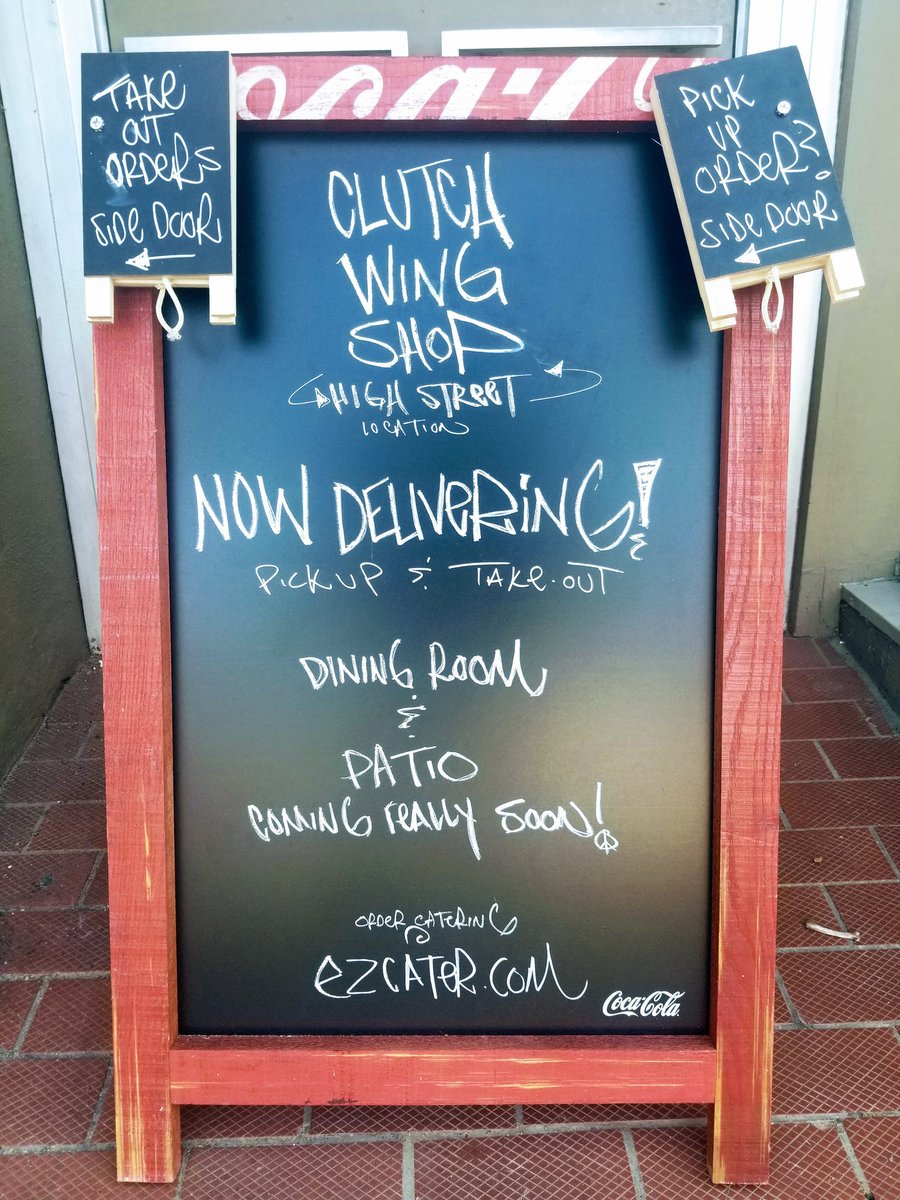 TAKE
OUT
ORDERS
SIDE DOOR
PICK
UP
ORDER?
SIDE DOOR
Coca-Cola
CLUTCH
WING
SHOP
HIGH STREET
LOCATION
NOW DELIVERING!
&
PICK UP & TAKE-OUT
DINING ROOM
&
PATIO
COMING REALLY SOON!
ORDER CATERING
EZCATER.COM
Coca-Cola